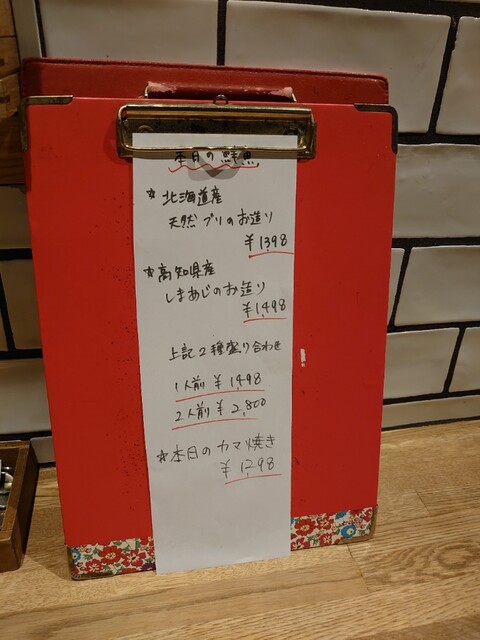 本日の鮮魚
☆北海道産
天然ブリのお造り
¥1398
☆高知県産
しまあじのお造り
¥1,498
上記2種盛り合わせ
1人前 ¥1,498
2人前 ¥2,800
☆本日のカマ焼き
¥1298